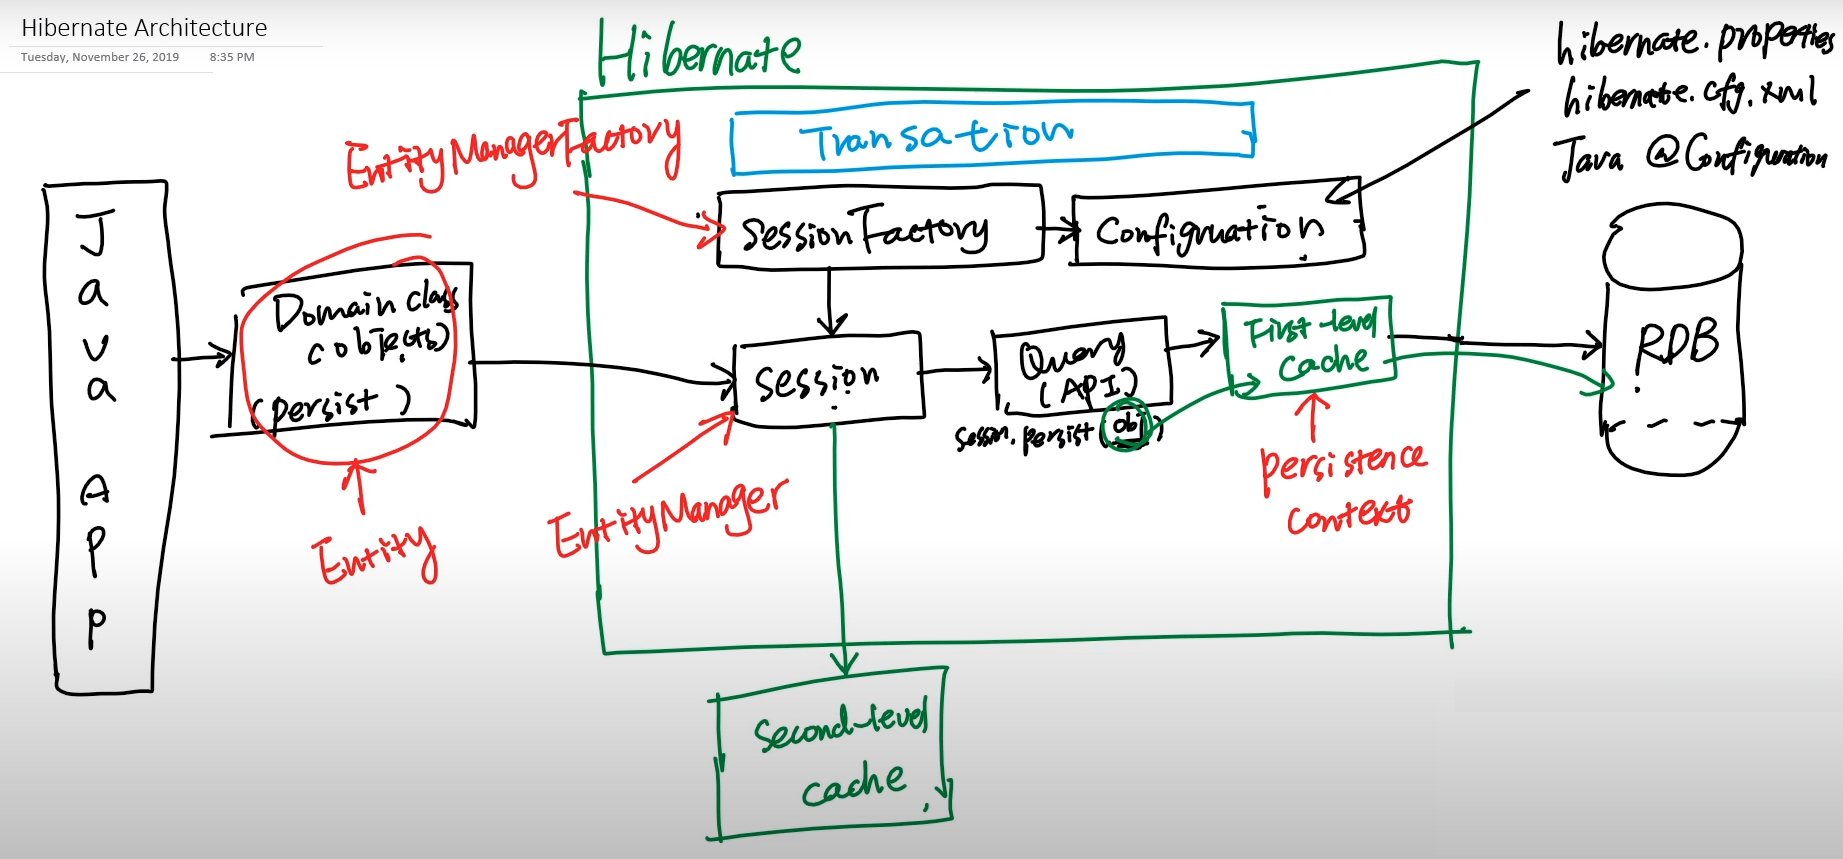 Hibernate Architecture
Tuesday, November 26, 2019 8:35 PM
Hibernate
hibernate.properties
hibernate.cfg.xml
Java @Configuration
Transation
EntityManagerFactory
SessionFactory
Configruation
Java APP
Domain class
(objects)
(persist)
Entity
Session
EntityManager
Query
(API)
session.persist(obj)
First-level
cache
persistence
context
RDB
Second-level
cache